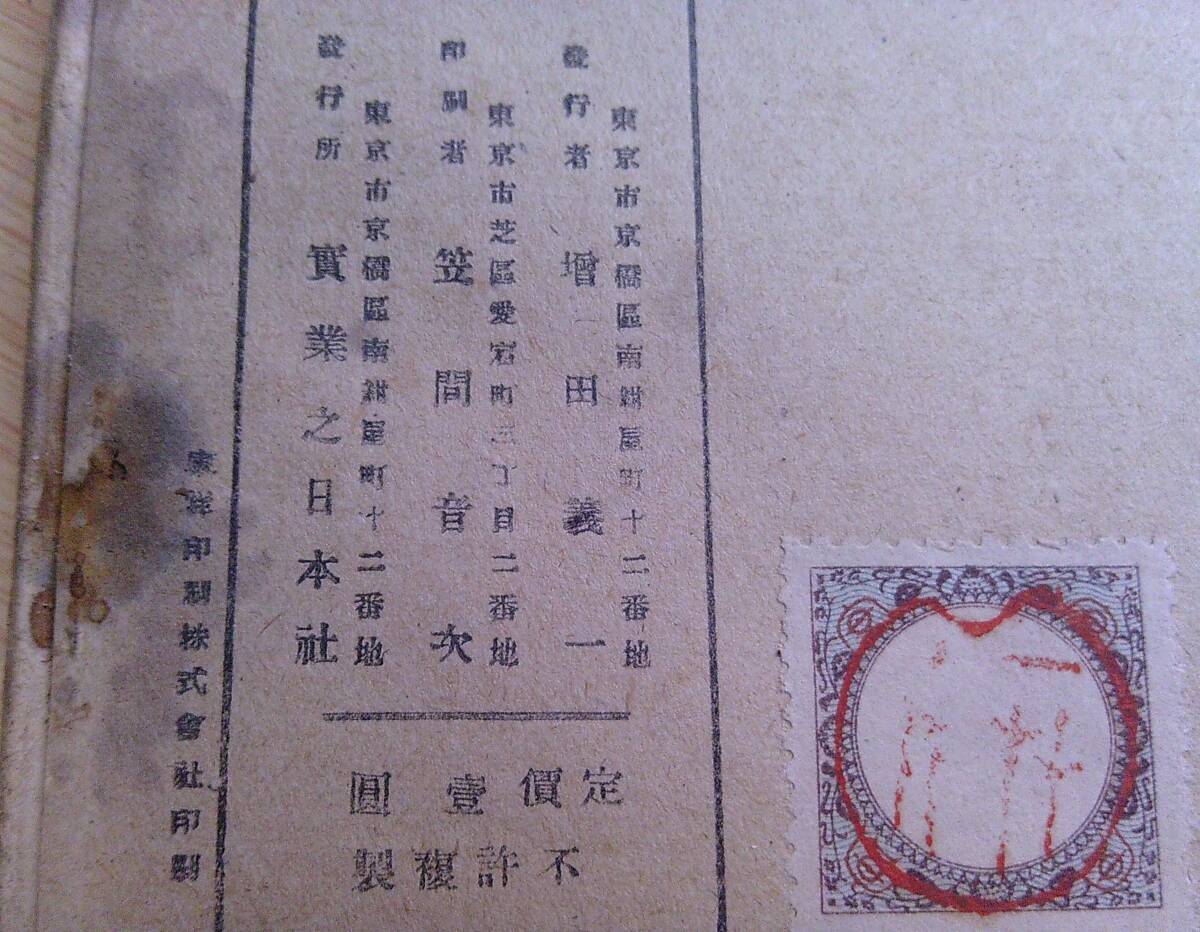 東京市京橋區南紺屋町十二番地
發行者 增田義一
東京市芝區愛宕町三丁目二番地
印刷者 笠間音次
東京市京橋區南紺屋町十二番地
發行所 實業之日本社
定價壹圓
不許複製
東洋印刷株式會社印刷